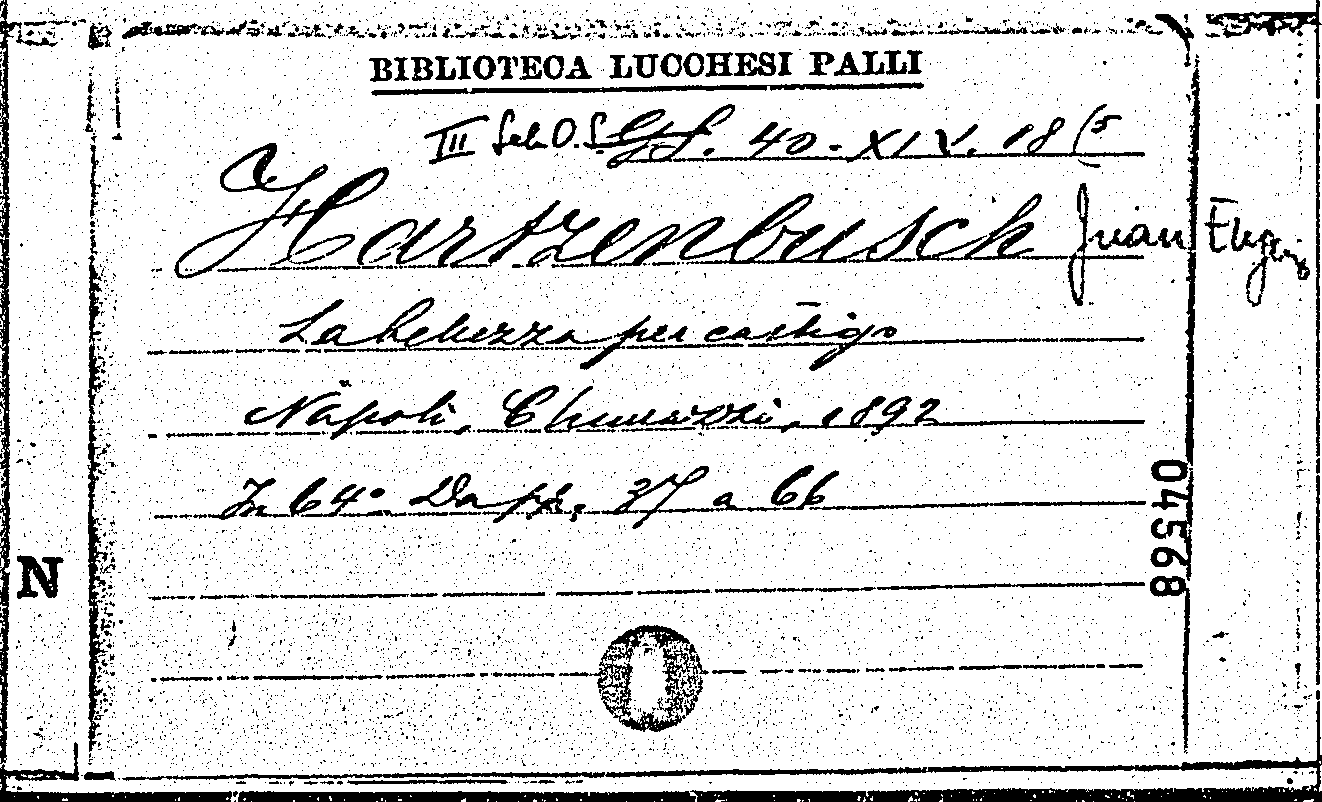 BIBLIOTECA LUCCHESI PALLI
III Sala O.S. 40. XIV. 18 (5
Hartzenbusch Juan Eugenio
La bellezza per castigo
Napoli, Chiurazzi, 1892
In 64° Da pp. 37 a 66
045698
N